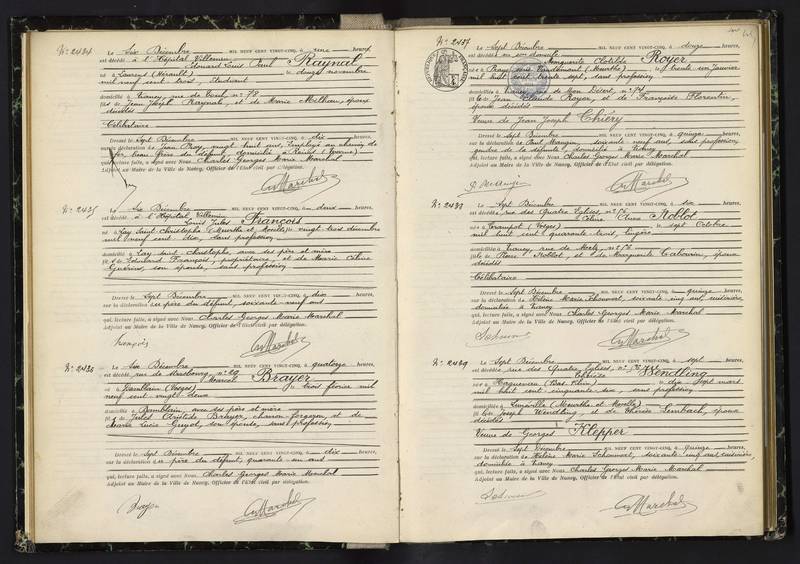 N° 2434 Le Six Décembre MIL NEUF CENT VINGT-CINQ, à onze heures,
est décédé à l'Hôpital Villemin
Edouard Louis Paul Raynal
né à Laurens (Hérault) le douze novembre
mil neuf cent trois, Etudiant
domicilié à Nancy, rue de Toul n° 78
fils de Jean Joseph Raynal, et de Marie Milhau, époux
décédés
Célibataire
Dressé le Sept Décembre MIL NEUF CENT VINGT-CINQ, à dix heures,
sur la déclaration de Jean Roy, vingt huit ans, Employé au chemin de
fer, beau-frère du défunt, domicilié à
qui, lecture faite, a signé avec Nous Charles Georges Marie Marchal
Adjoint au Maire de la Ville de Nancy, Officier de l'Etat civil par délégation.
N° 2435 Le Six Décembre MIL NEUF CENT VINGT-CINQ, à deux heures,
est décédé à l'Hôpital Villemin
Louis Jules François
né à Lay Saint Christophe (Meurthe et Moselle) le vingt trois décembre
mil neuf cent dix, sans profession
domicilié à Lay Saint Christophe, avec ses père et mère
fils de Edouard François, propriétaire, et de Marie
son épouse, sans profession
Dressé le Sept Décembre MIL NEUF CENT VINGT-CINQ, à dix heures,
sur la déclaration du père du défunt, soixante neuf ans
qui, lecture faite, a signé avec Nous Charles Georges Marie Marchal
Adjoint au Maire de la Ville de Nancy, Officier de l'Etat civil par délégation.
François
N° 2436 Le Six Décembre MIL NEUF CENT VINGT-CINQ, à quatorze heures,
est décédé rue de Strasbourg, n° 29
Marcel Brayer
né à Damblain (Vosges) le trois février mil
neuf cent vingt deux
domicilié à Damblain, avec ses père et mère
fils de Jules Aristide Brayer, charron forgeron, et de
Marie Lucie Guyot, son épouse, sans profession
Dressé le Sept Décembre MIL NEUF CENT VINGT-CINQ, à dix heures,
sur la déclaration du père du défunt, quarante un ans
qui, lecture faite, a signé avec Nous Charles Georges Marie Marchal
Adjoint au Maire de la Ville de Nancy, Officier de l'Etat civil par délégation.
Brayer
N° 2437 Le Sept Décembre MIL NEUF CENT VINGT-CINQ, à douze heures,
est décédée en son domicile
Marguerite Clotilde Royer
née à (Meurthe) le trente un Janvier
mil huit cent trente sept, sans profession
domiciliée à Nancy, rue de Mon Désert, n° 74
fille de Jean Claude Royer, et de Françoise Florentin,
époux décédés
Veuve de Jean Joseph Thiéry
Dressé le Sept Décembre MIL NEUF CENT VINGT-CINQ, à quinze heures,
sur la déclaration de Paul Mangin, soixante neuf ans, sans profession,
gendre de la défunte, domicilié à Nancy
qui, lecture faite, a signé avec Nous Charles Georges Marie Marchal
Adjoint au Maire de la Ville de Nancy, Officier de l'Etat civil par délégation.
P. Mangin
N° 2438 Le Sept Décembre MIL NEUF CENT VINGT-CINQ, à six heures,
est décédée rue des Quatre Eglises, n°
Noblot
née à Trampot (Vosges) le sept Octobre
mil huit cent quarante trois, lingère
domiciliée à Nancy, rue de Metz, n°
fille de Pierre Noblot, et de Marguerite époux
décédés
Célibataire
Dressé le Sept Décembre MIL NEUF CENT VINGT-CINQ, à quinze heures,
sur la déclaration de Hélène Marie soixante cinq ans, cuisinière
domiciliée à Nancy
qui, lecture faite, a signé avec Nous Charles Georges Marie Marchal
Adjoint au Maire de la Ville de Nancy, Officier de l'Etat civil par délégation.
N° 2439 Le Sept Décembre MIL NEUF CENT VINGT-CINQ, à sept heures,
est décédée rue des Quatre Eglises, n°
Thérèse Wendling
née à Haguenau (Bas Rhin) le dix sept mars
mil huit cent cinquante six, sans profession
domiciliée à Lunéville (Meurthe et Moselle)
fille de Joseph Wendling, et de Thérèse Lembach, époux
décédés
Veuve de Georges Klepper
Dressé le Sept Décembre MIL NEUF CENT VINGT-CINQ, à quinze heures,
sur la déclaration de Hélène Marie soixante cinq ans, cuisinière
domiciliée à Nancy
qui, lecture faite, a signé avec Nous Charles Georges Marie Marchal
Adjoint au Maire de la Ville de Nancy, Officier de l'Etat civil par délégation.